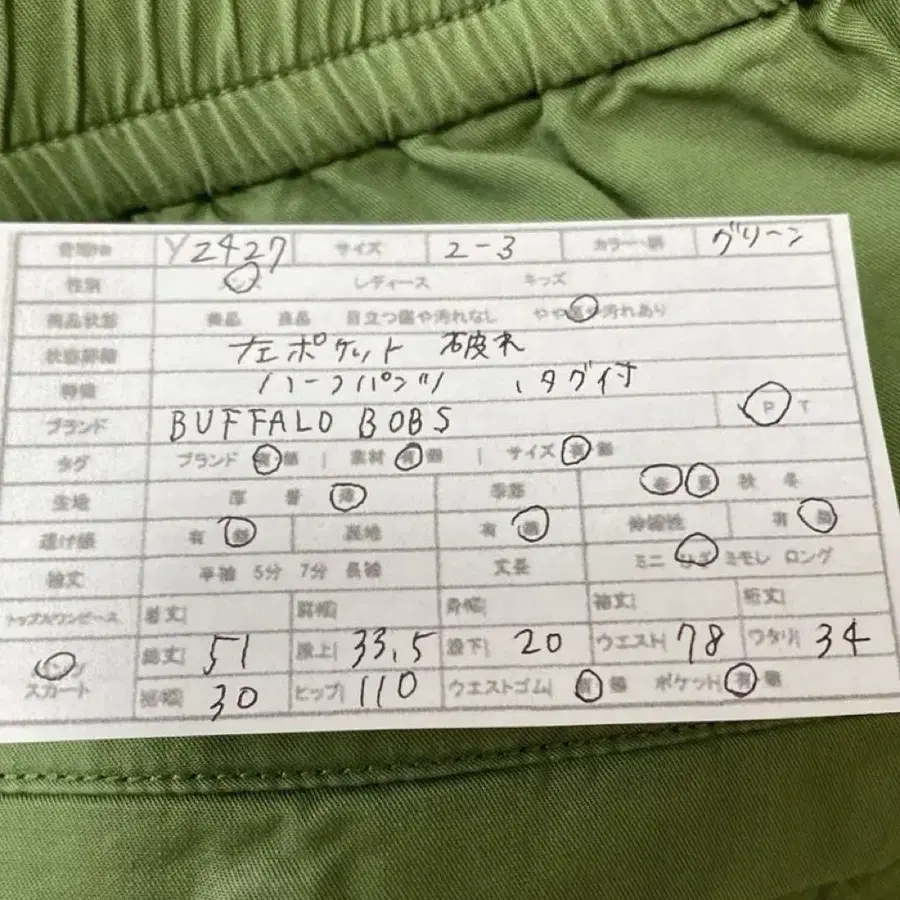 管理No Y2427 サイズ 2-3 カラー・柄 グリーン
性別 レディース キッズ
商品状態 美品 良品 目立つ傷や汚れなし やや傷や汚れあり
状態詳細 左ポケット 破れ
特徴 ハーフパンツ 、タグ付
ブランド BUFFALO BOBS P T
タグ ブランド 有 無 | 素材 有 無 | サイズ 有 無
生地 厚 普 薄 季節 春 夏 秋 冬
透け感 有 無 裏地 有 無 伸縮性 有 無
袖丈 半袖 5分 7分 長袖 丈長 ミニ ひざ ミモレ ロング
トップス/ワンピース 着丈 肩幅 身幅 袖丈 裄丈
総丈 51 股上 33.5 股下 20 ウエスト 78 ワタリ 34
スカート 裾幅 30 ヒップ 110 ウエストゴム 有 無 ポケット 有 無